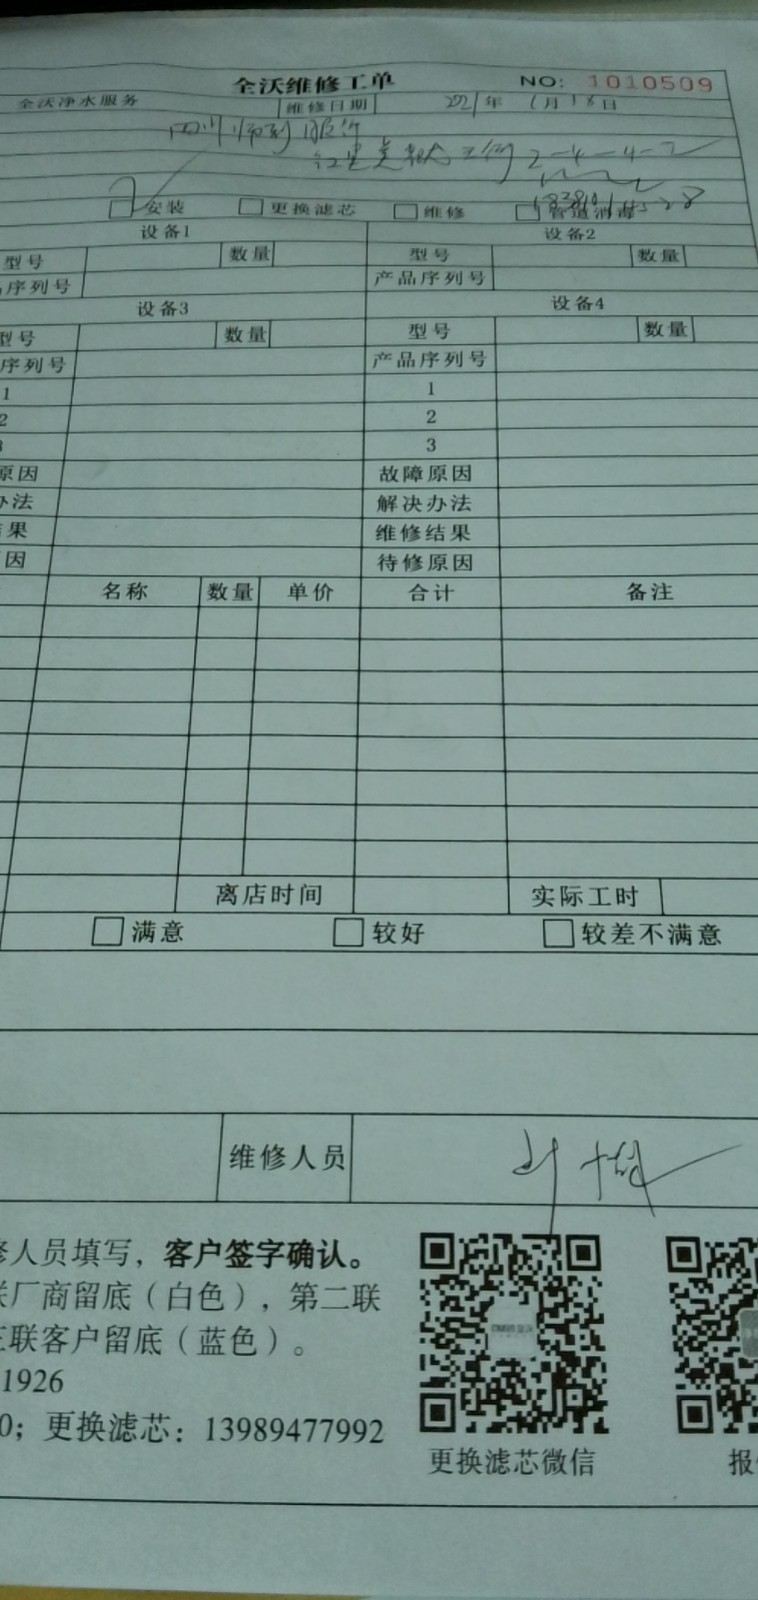 全沃维修工单 NO: 1010509
全沃净水服务 维修日期 2021年 1月18日
2-4-4-2
安装 更换滤芯 维修 管道消毒
设备1 设备2
型号 数量 型号 数量
品序列号 产品序列号
设备3 设备4
型号 数量 型号 数量
序列号 产品序列号
1 1
2 2
3 3
原因 故障原因
办法 解决办法
结果 维修结果
原因 待修原因
名称 数量 单价 合计 备注
离店时间 实际工时
满意 较好 较差不满意
维修人员
修人员填写，客户签字确认。
联厂商留底（白色），第二联
三联客户留底（蓝色）。
1926
0；更换滤芯：13989477992
更换滤芯微信 报